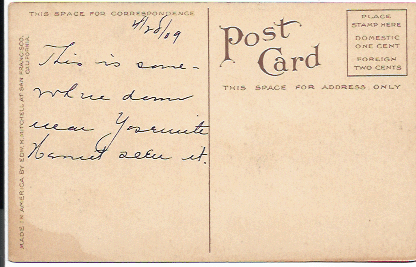 THIS SPACE FOR CORRESPONDENCE
4/20/09
This is some-
where down
near Yosemite
Havent seen it.
MADE IN AMERICA BY EDW. H. MITCHELL AT SAN FRANCISCO, CALIFORNIA.
Post
Card
THIS SPACE FOR ADDRESS ONLY
PLACE
STAMP HERE
DOMESTIC
ONE CENT
FOREIGN
TWO CENTS